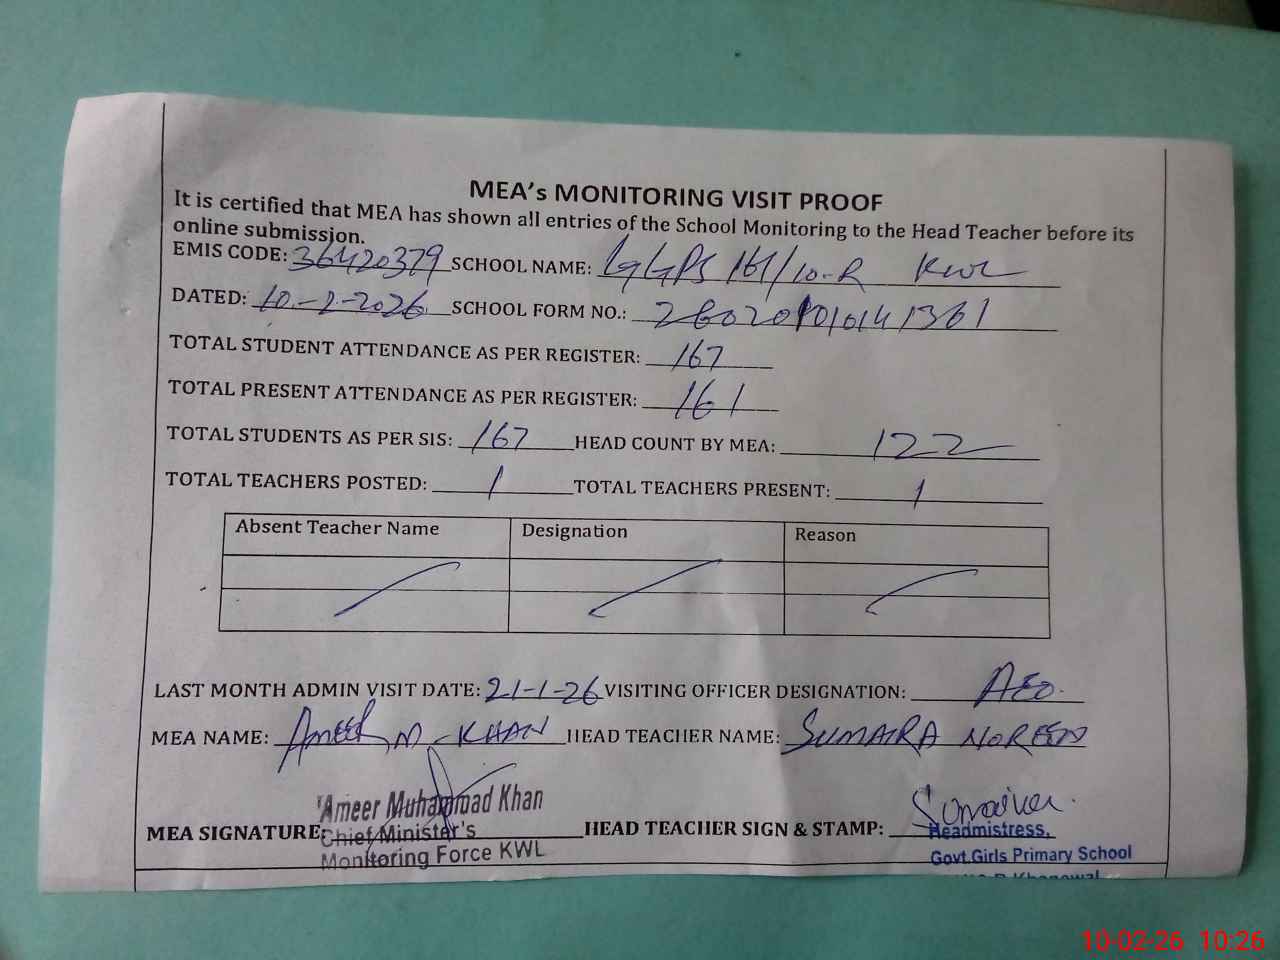 MEA's MONITORING VISIT PROOF
It is certified that MEA has shown all entries of the School Monitoring to the Head Teacher before its
online submission.
EMIS CODE: 36420379 SCHOOL NAME: GGPS 161/10-R KWL
DATED: 10-2-2026 SCHOOL FORM NO.:
TOTAL STUDENT ATTENDANCE AS PER REGISTER: 167
TOTAL PRESENT ATTENDANCE AS PER REGISTER: 161
TOTAL STUDENTS AS PER SIS: 167 HEAD COUNT BY MEA: 122
TOTAL TEACHERS POSTED: 1 TOTAL TEACHERS PRESENT: 1
Absent Teacher Name Designation Reason
LAST MONTH ADMIN VISIT DATE: 21-1-26 VISITING OFFICER DESIGNATION: AEO.
MEA NAME: Ameer M-KHAN HEAD TEACHER NAME: SUMAIRA NOREEN
Ameer Muhammad Khan
MEA SIGNATURE: Chief Minister's HEAD TEACHER SIGN & STAMP: Headmistress,
Monitoring Force KWL Govt. Girls Primary School
Khanewal
10-02-26 10:26